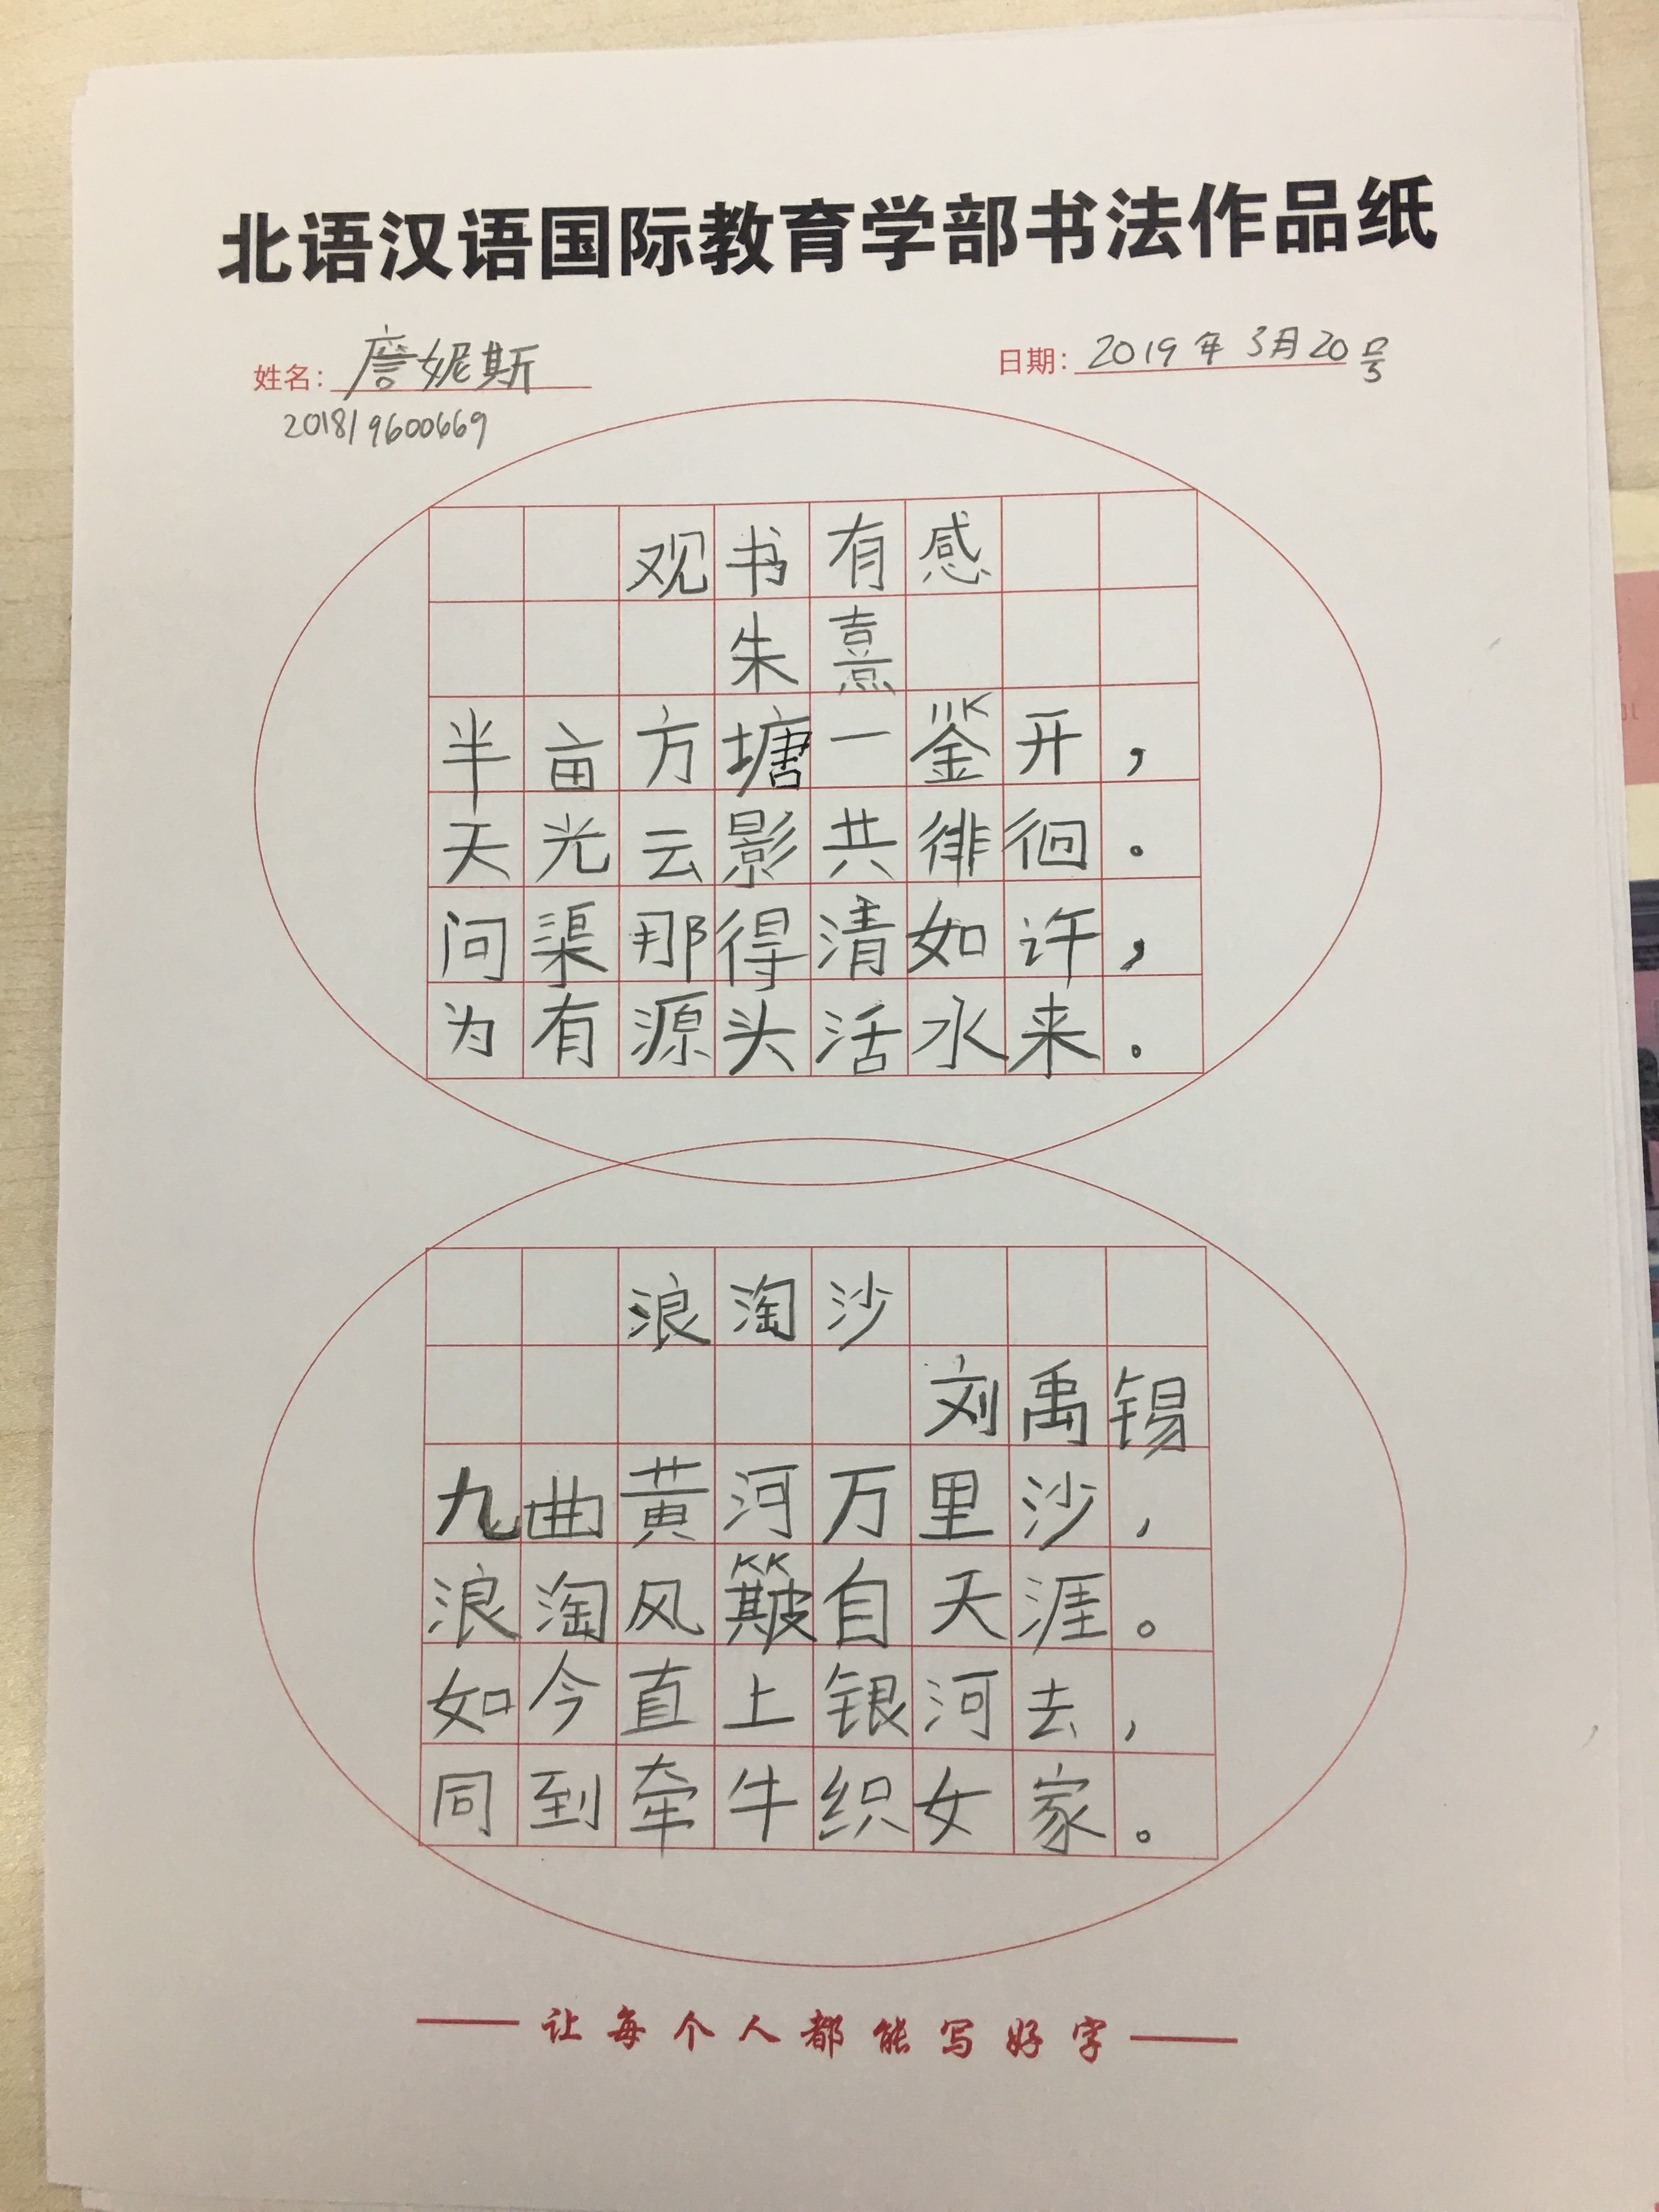 北语汉语国际教育学部书法作品纸
姓名：詹妮斯
日期：2019年3月20号
201819600669
观书有感
朱熹
半亩方塘一鉴开，
天光云影共徘徊。
问渠那得清如许，
为有源头活水来。
浪淘沙
刘禹锡
九曲黄河万里沙，
浪淘风簸自天涯。
如今直上银河去，
同到牵牛织女家。
让每个人都能写好字